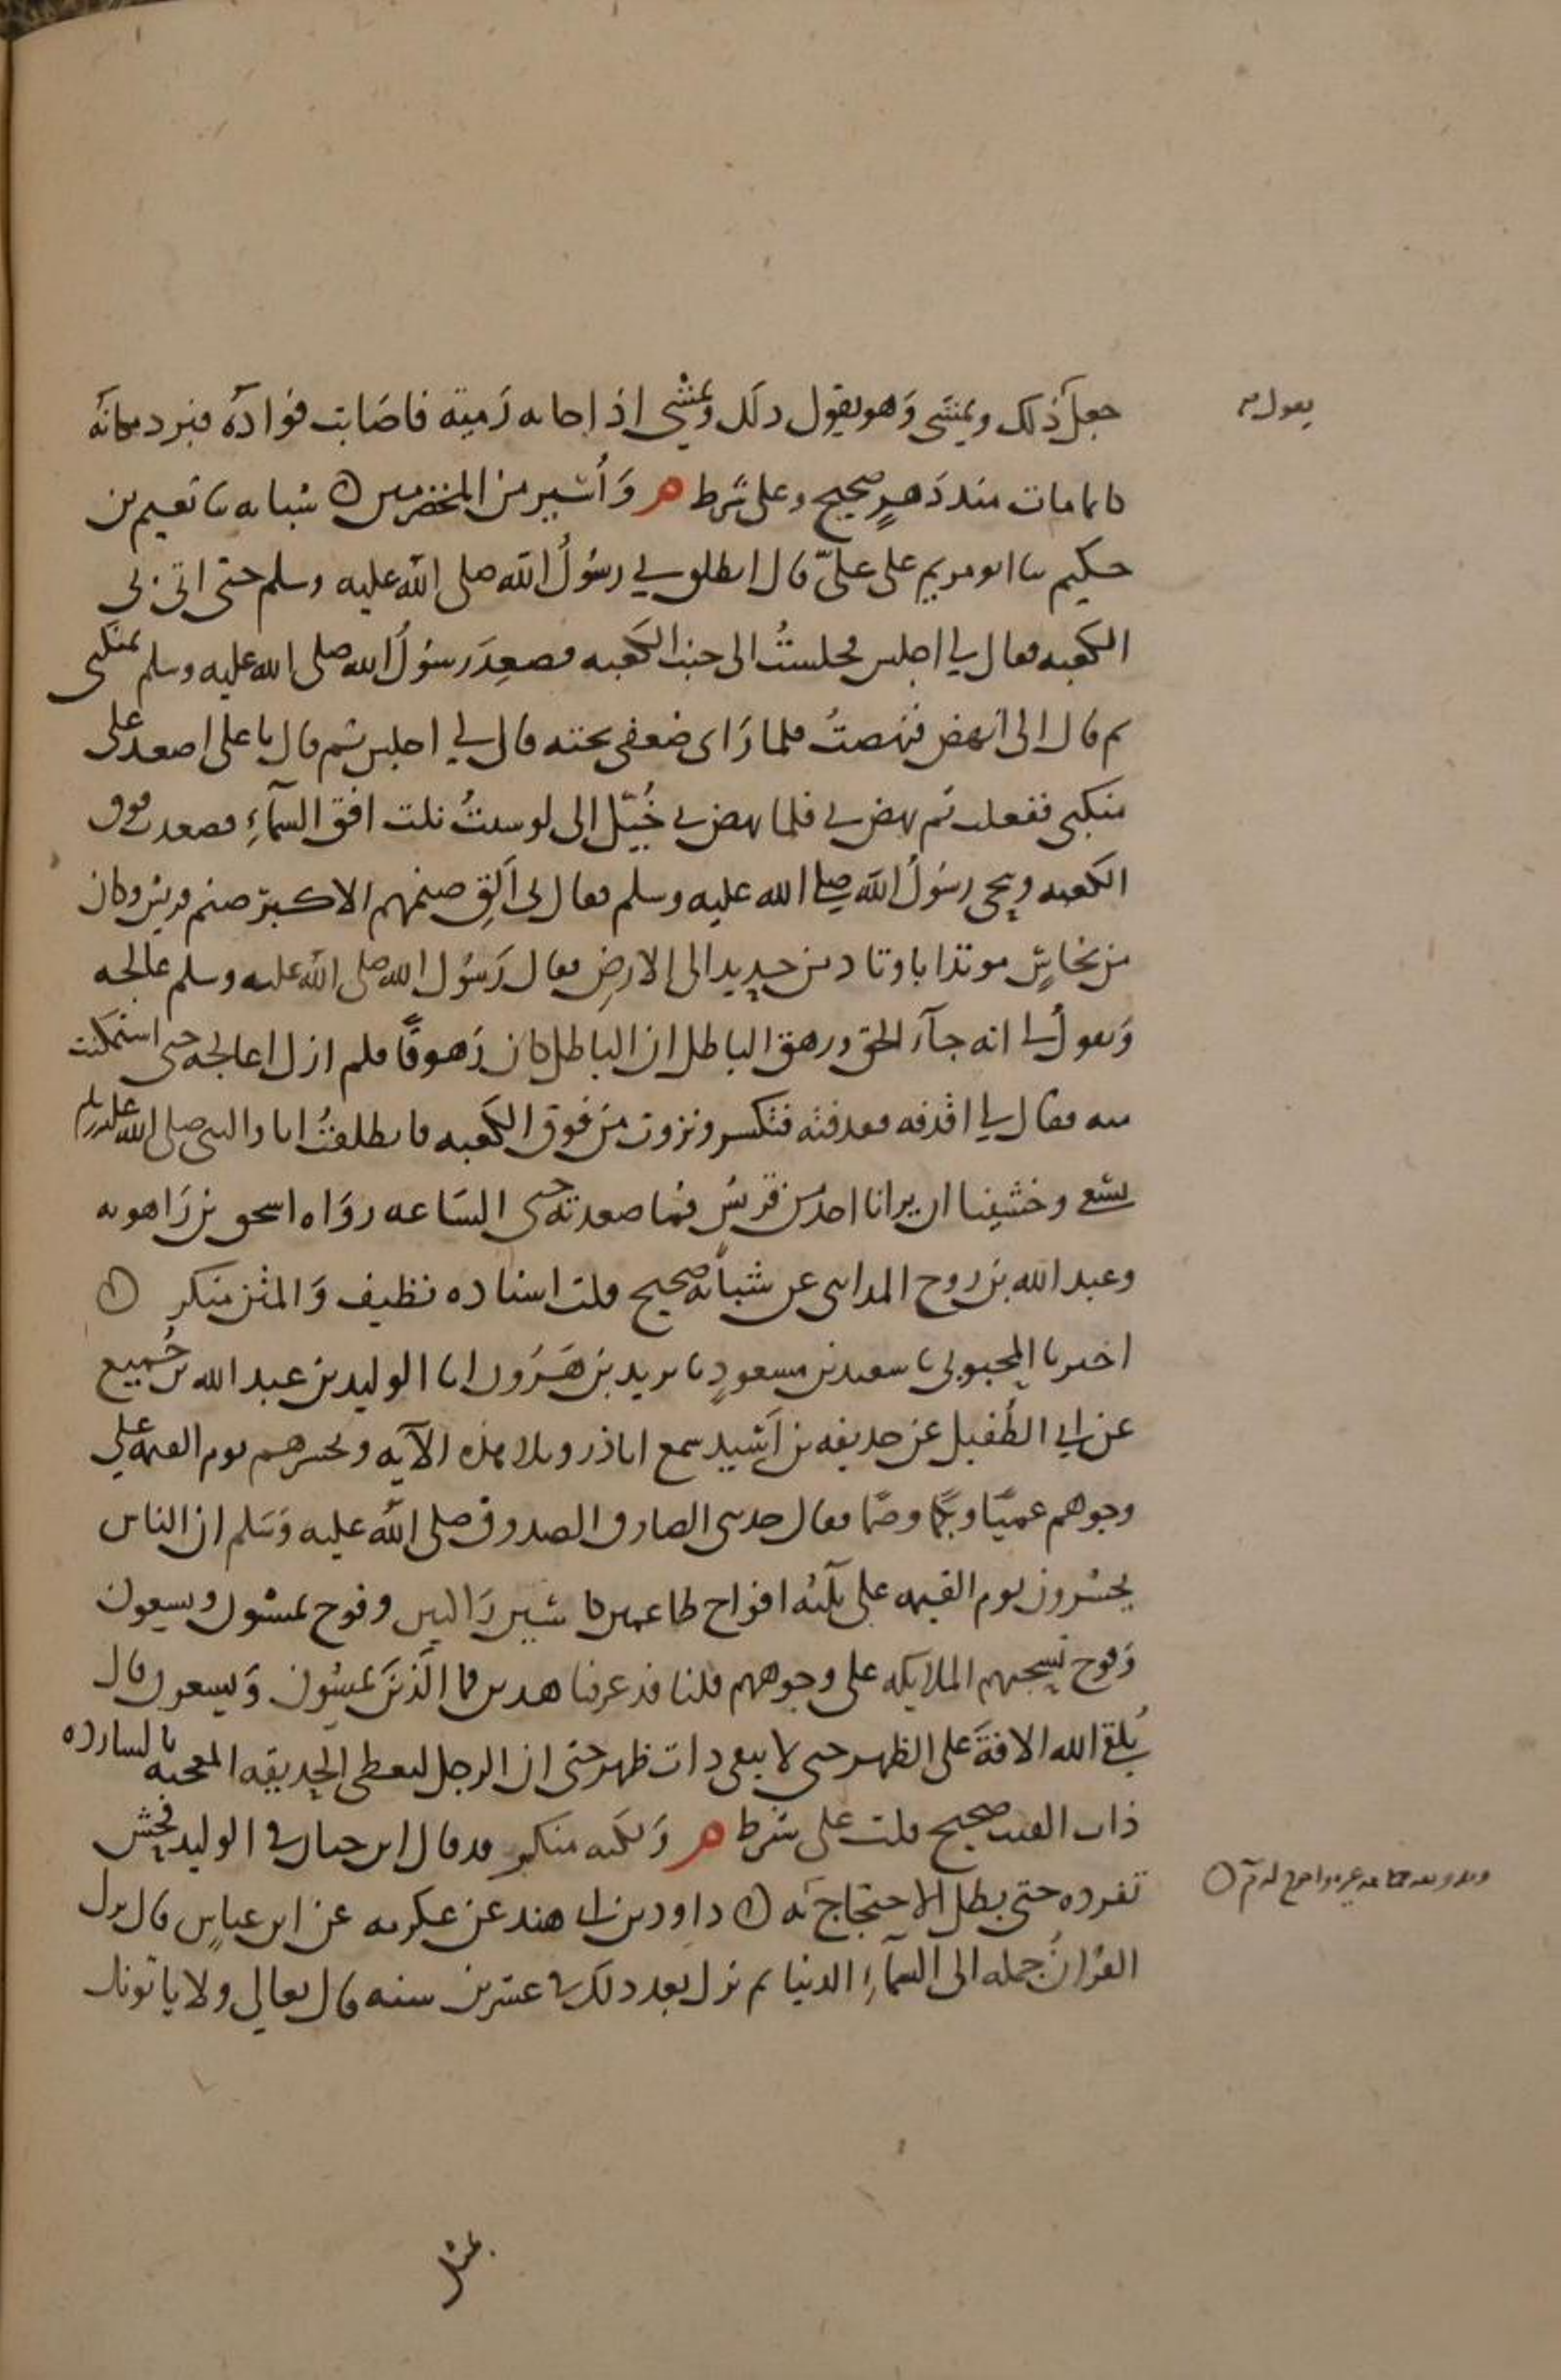 جعل ذلك ويمشى وهو يقول ذلك ويمشى اذ اجابه رمية فاصابت فواده فبرد مكانه
يقول م
كانما مات منذ دهر صحيح وعلى شرط م وأسير من المخضرمين ۞ شبابه نا نعيم بن
حكيم نا ابو مريم على علىّ قال انطلق بي رسول الله صلى الله عليه وسلم حتى اتى بي
الكعبه فقال لي اجلس فجلست الى جنب الكعبه فصعد رسول الله صلى الله عليه وسلم بمنكبى
ثم قال الى انهض فنهضت فلما راى ضعفى تحته قال لي اجلس ثم قال يا على اصعد على
منكبى ففعلت ثم نهض بي فلما نهض بي خيّل الى لو شئت نلت افق السماء فصعدت فوق
الكعبه وتنحى رسول الله صلى الله عليه وسلم فقال لى ألق صنمهم الاكبر صنم قريش وكان
من نحاس موتدا باوتاد من حديد الى الارض فقال رسول الله صلى الله عليه وسلم عالجه
ويقول لى انه جآء الحق وزهق الباطل ان الباطل كان زهوقا فلم ازل اعالجه حتى استمكنت
منه فقال لي اقذفه فقذفته فتكسر ونزوت من فوق الكعبه فانطلقت انا والنبى صلى الله عليه وسلم
نسعى وخشينا ان يرانا احد من قريش فما صعدته حتى الساعه رواه اسحق بن راهويه
وعبد الله بن روح المدائنى عن شبابه صحيح قلت اسناده نظيف والمتن منكر ۞
اخبرنا المحبوبى نا سعيد بن مسعود نا يزيد بن هرون انا الوليد بن عبد الله بن جُميع
عن ابي الطفيل عن حذيفه بن أسيد سمع اباذر وتلا هذه الآيه ونحشرهم يوم القيمه على
وجوههم عميًا وبكما وصمّا فقال حدثنى الصادق الصدوق صلى الله عليه وسلم ان الناس
يحشرون يوم القيمه على ثلثه افواج طاعمين كاسين راكبين وفوج يمشون ويسعون
وفوج تسحبهم الملايكه على وجوههم قلنا قد عرفنا هذين فما الّذين يمشون ويسعون قال
يُلقى الله الافة على الظهر حتى لا يبقى ذات ظهر حتى ان الرجل ليعطى الحديقه المعجبه بالشارده
ذات القتب صحيح قلت على شرط م ولكنه منكر وقد قال ابن حبان في الوليد فحش
تفرده حتى بطل الاحتجاج به ۞ داود بن ابى هند عن عكرمه عن ابن عباس قال نزل
القرانُ جمله الى السماء الدنيا ثم نزل بعد ذلك في عشرين سنه قال تعالى ولا ياتونك
بمثل